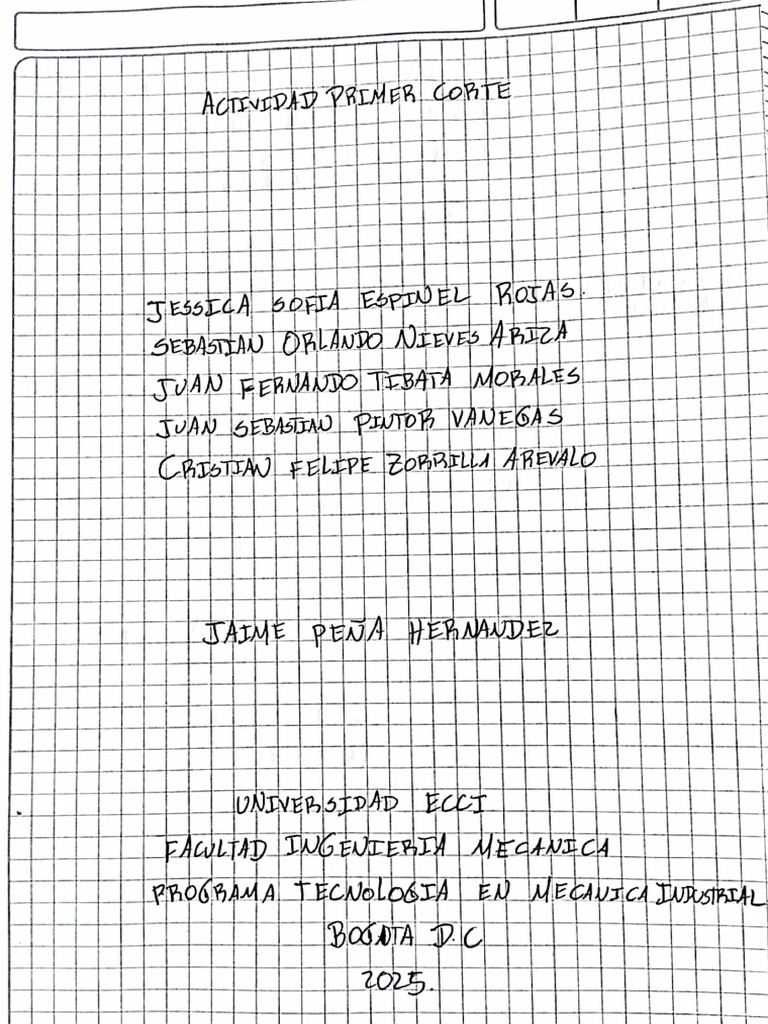 ACTIVIDAD PRIMER CORTE
JESSICA SOFIA ESPINEL ROJAS.
SEBASTIAN ORLANDO NIEVES ARIZA
JUAN FERNANDO TIBATA MORALES
JUAN SEBASTIAN PINTOR VANEGAS
CRISTIAN FELIPE ZORRILLA AREVALO
JAIME PEÑA HERNANDEZ
UNIVERSIDAD ECCI
FACULTAD INGENIERIA MECANICA
PROGRAMA TECNOLOGIA EN MECANICA INDUSTRIAL
BOGOTA D.C
2025.